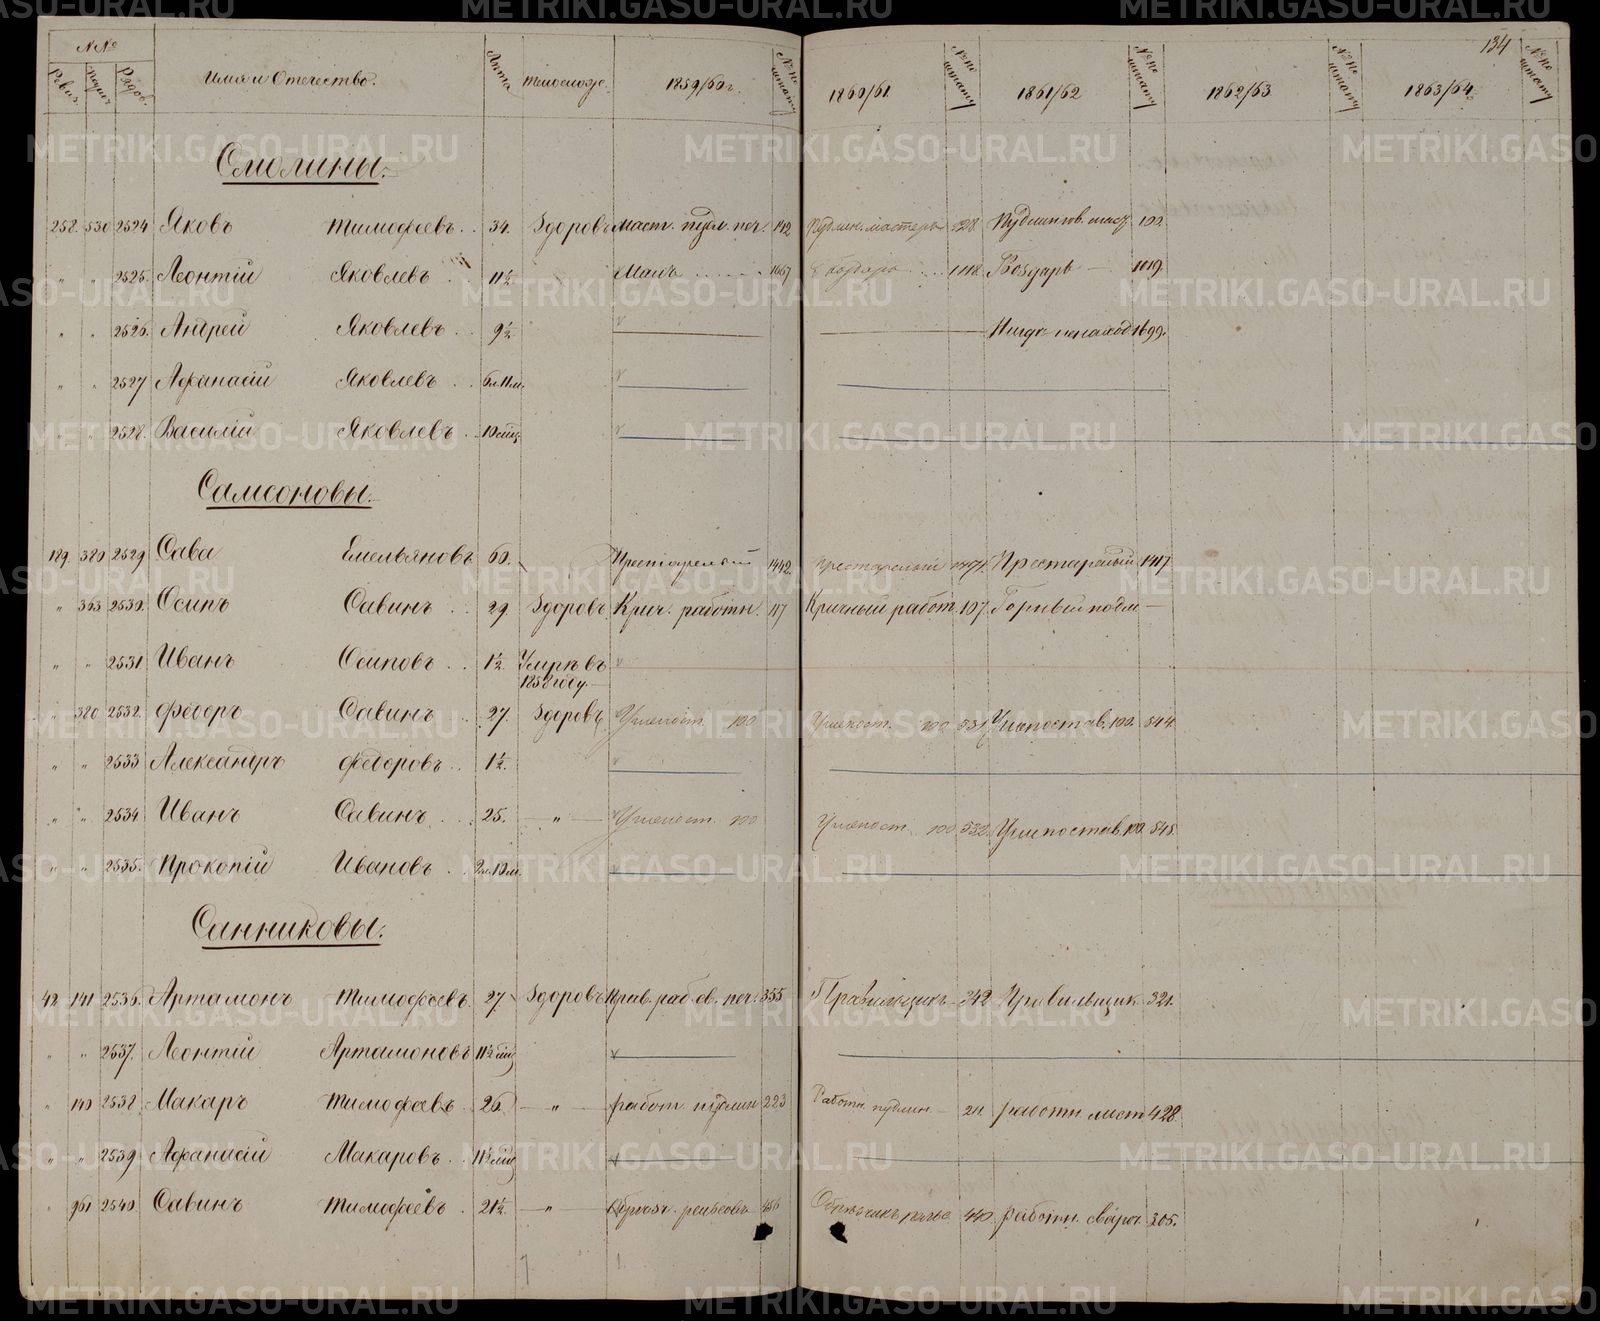 134
№№
Ревиз. Рядов.
Имя и Отчество.
Лета
Телослож.
1859/60 г.
№ по штату
1860/61.
№ по штату
1861/62
№ по штату
1862/63
№ по штату
1863/64.
№ по штату
Смолины.
258. 530 2524 Яковъ Тимофеевъ . . 34. Здоровъ Маст. пудл. печ. 142 Пудлин. мастеръ 128. Пудлингов. маст. 102.
„ „ 2525. Леонтій Яковлевъ . . 11½ 1667 1112. 1019.
„ „ 2526. Андрей Яковлевъ . . 9½ 1699.
„ „ 2527 Афанасій Яковлевъ . . 6л.11м.
„ „ 2528. Василій Яковлевъ . 10 мѣс.
Самсоновы.
189. 380 2529. Сава Емельяновъ 60. Престарелой 1442. престарелый 1471. Престарелый 1417
„ 363 2530. Осипъ Савинъ . . 29. Здоровъ Крич. работн. 117 Кричный работ. 107. Горный подм. —
„ „ 2531 Иванъ Осиповъ . . 1½. Умрѣ въ
1858 году.
„ 380 2532. Федоръ Савинъ . 27. Здоровъ Углепост. 100 Углепост. 100 531 Углепостав. 100. 544.
„ „ 2533 Александръ Федоровъ . . 1½.
„ „ 2534 Иванъ Савинъ . . . 25. — „ — Углепост. 100 Углепост. 100 532. Углепостав. 100. 545.
„ „ 2535. Прокопій Ивановъ . . 2г.10м.
Санниковы.
42 141 2536. Артамонъ Тимофеевъ. 27. Здоровъ Прав. раб. св. печ. 355 Правильщикъ 342 Правильщик. 321.
„ „ 2537. Леонтій Артамоновъ 11½ мѣс
„ 140 2538. Макаръ Тимофеевъ. 26. — „ — работ. пудлин 223 Работн. пудлин. — 211 работн. лист. 428.
„ „ 2539. Афанасій Макаровъ . . 11½ мѣс
„ 961 2540. Савинъ Тимофеевъ . 21½. — „ — Обрѣзч. рельсовъ 456 440 работн. свароч. 305.
METRIKI.GASO-URAL.RU